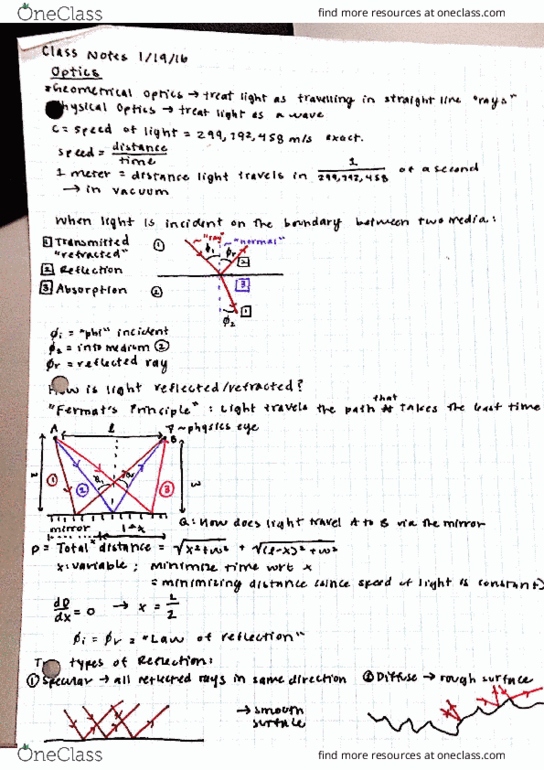 OneClass
find more resources at oneclass.com
Class Notes 1/19/16
Optics
*Geometrical Optics → treat light as travelling in straight line "rays"
Physical Optics → treat light as a wave
c = speed of light = 299,792,458 m/s exact.
speed = distance / time
1 meter = distance light travels in 1 / 299,792,458 of a second
→ in vacuum
When light is incident on the boundary between two media:
1 Transmitted "refracted"
2 Reflection
3 Absorption
① ②
~"ray" ~"normal"
ϕi ϕr 2
3
1
ϕ2
ϕi = "phi" incident
ϕ2 = into medium ②
ϕr = reflected ray
How is light reflected/refracted?
"Fermat's Principle" : Light travels the path that takes the least time
A l B ~physics eye
① ② ③
w w
mirror
x l-x
Q: How does light travel A to B via the mirror
p = Total distance = √x²+w² + √(l-x)²+w²
x: variable ; minimize time wrt x
= minimizing distance (since speed of light is constant)
dp/dx = 0 → x = L/2
ϕi = ϕr = "Law of reflection"
types of Reflection:
① Specular → all reflected rays in same direction ② Diffuse → rough surface
→ smooth surface
OneClass
find more resources at oneclass.com